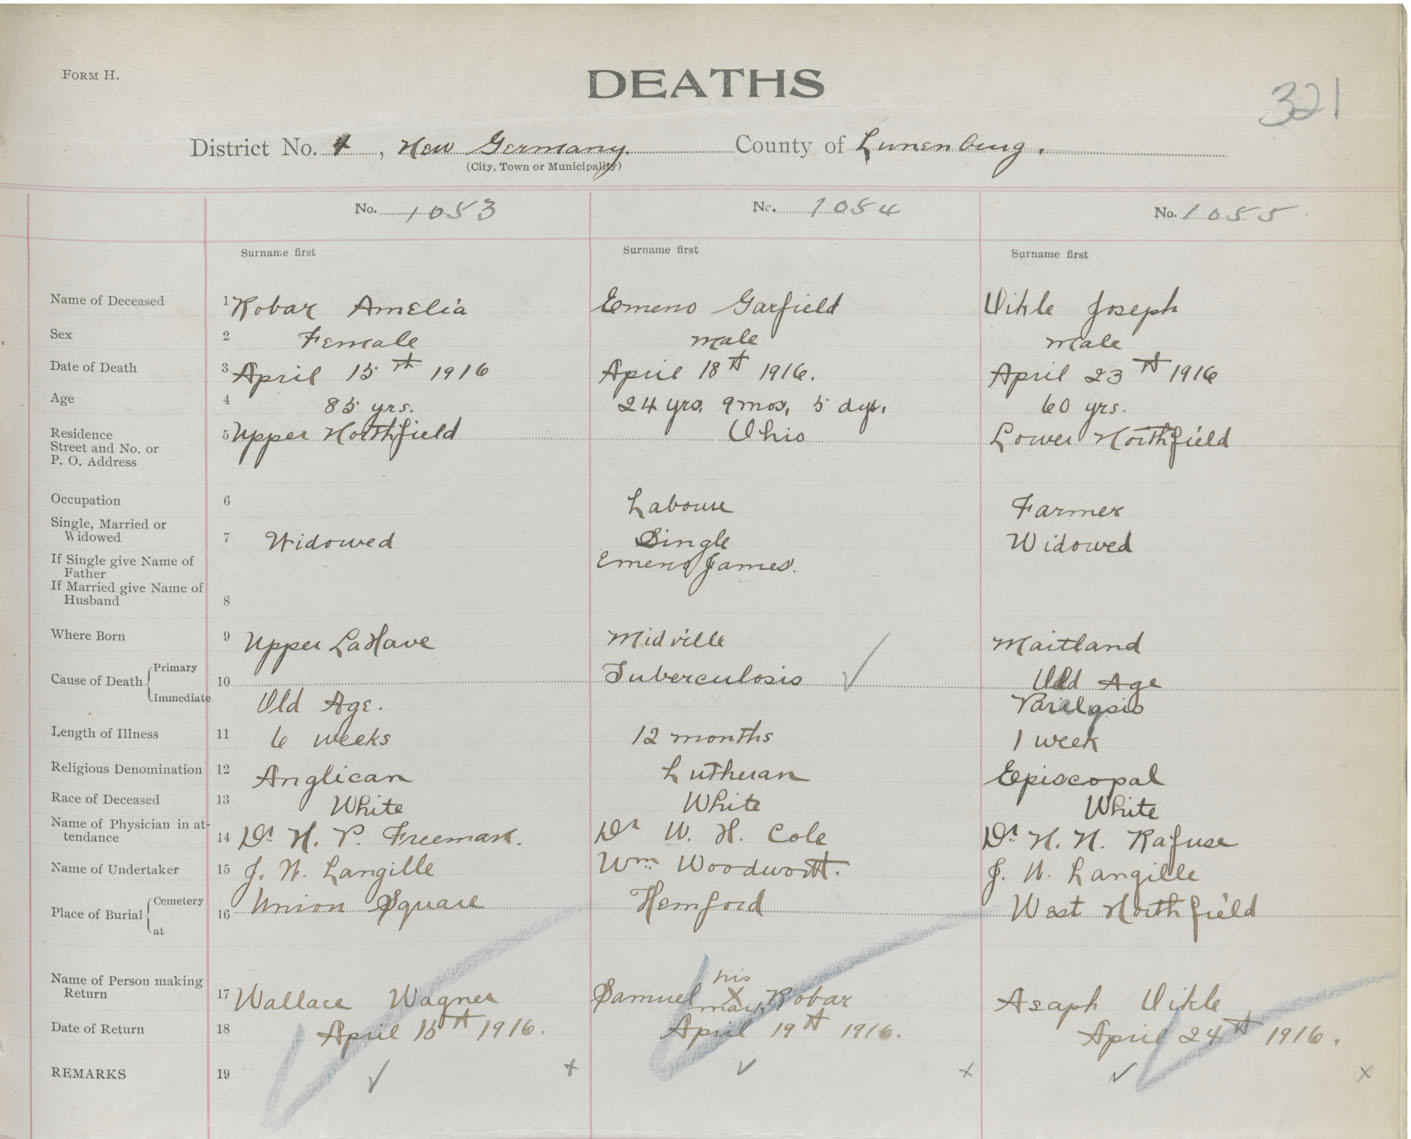 FORM H.
DEATHS
321
District No. 4, New Germany. County of Lunenburg.
(City, Town or Municipality)
No. 1053 No. 1054 No. 1055
Surname first Surname first Surname first
Name of Deceased 1 Robar Amelia Emeno Garfield Vikle Joseph
Sex 2 Female male male
Date of Death 3 April 15th 1916 April 18th 1916. April 23th 1916
Age 4 85 yrs. 24 yrs. 9 mos, 5 dys. 60 yrs.
Residence 5 Upper Northfield Ohio Lower Northfield
Street and No. or
P. O. Address
Occupation 6 Labour Farmer
Single, Married or
Widowed 7 Widowed Single Widowed
If Single give Name of Emeno James.
Father
If Married give Name of
Husband 8
Where Born 9 Upper LaHave Midville Maitland
Cause of Death Primary 10 Tuberculosis ✓ Old Age
Immediate Old Age. Paralysis
Length of Illness 11 6 weeks 12 months 1 week
Religious Denomination 12 Anglican Lutheran Episcopal
Race of Deceased 13 White White White
Name of Physician in at-
tendance 14 Dr. H. P. Freeman. Dr W. H. Cole Dr. H. N. Rafuse
Name of Undertaker 15 J. W. Langille Wm. Woodworth. J. W. Langille
Place of Burial Cemetery 16 Union Square Hemford West Northfield
at
his
Name of Person making
Return 17 Wallace Wagner Samuel X Robar Asaph Vikle
mark
Date of Return 18 April 15th 1916. April 19th 1916. April 24th 1916.
REMARKS 19 ✓ x ✓ x ✓ x